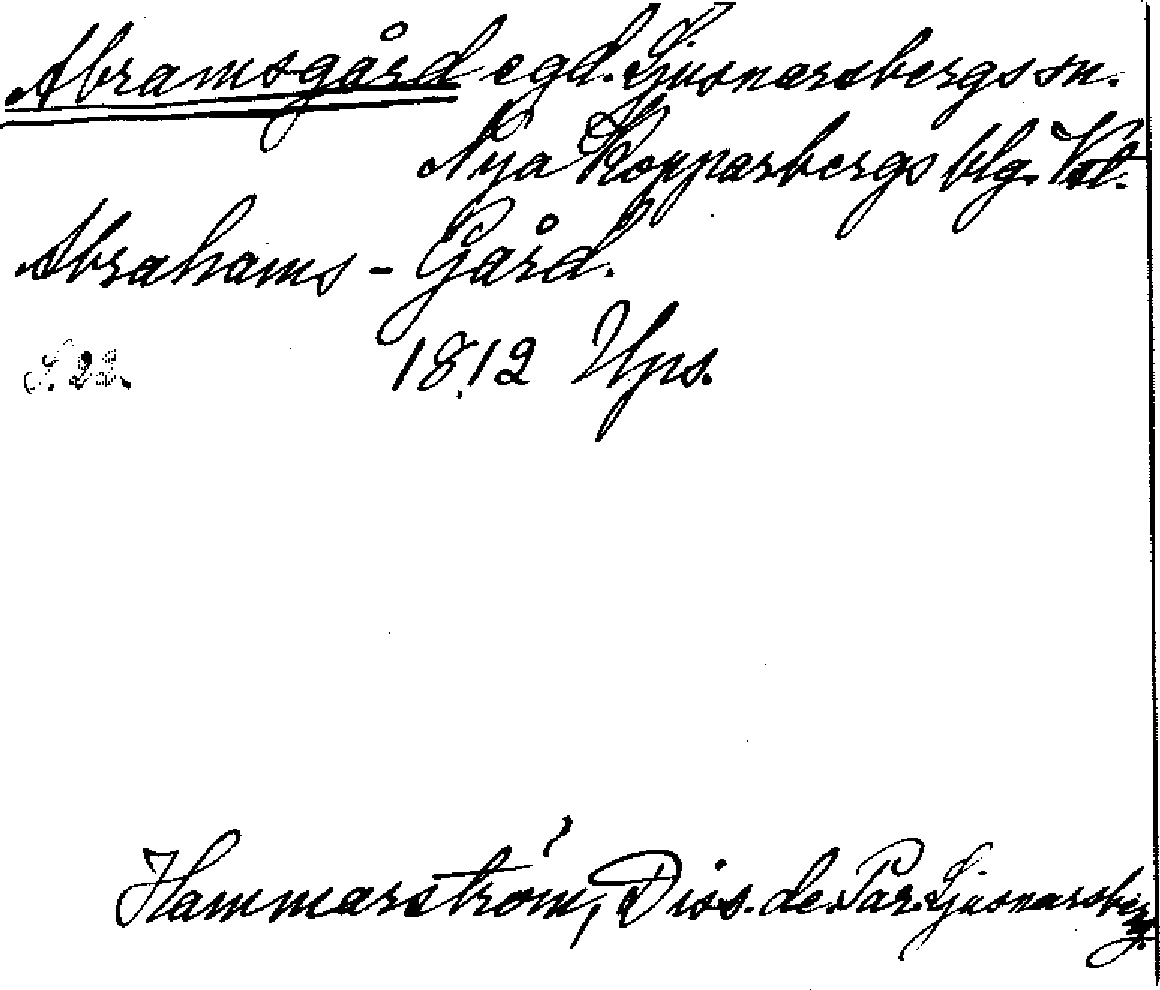 Abramsgård egd. Ljusnarsbergs sn.
Nya Kopparbergs blg. Vtl.
Abrahams - Gård.
S. 22. 1812 Ups.
Hammarström, Diss. de Par. Ljusnarsberg.